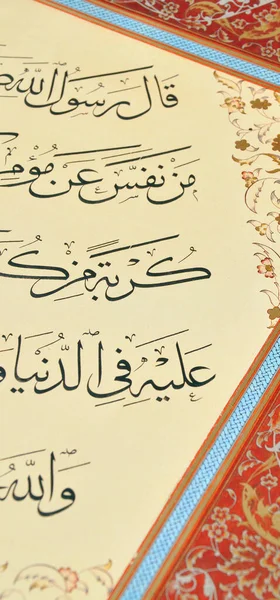 قَالَ رَسُولُ اللهِ
مَنْ نَفَّسَ عَنْ
كُرْبَةً مِنْ
عَلَيْهِ فِي الدُّنْيَا
وَاللهُ